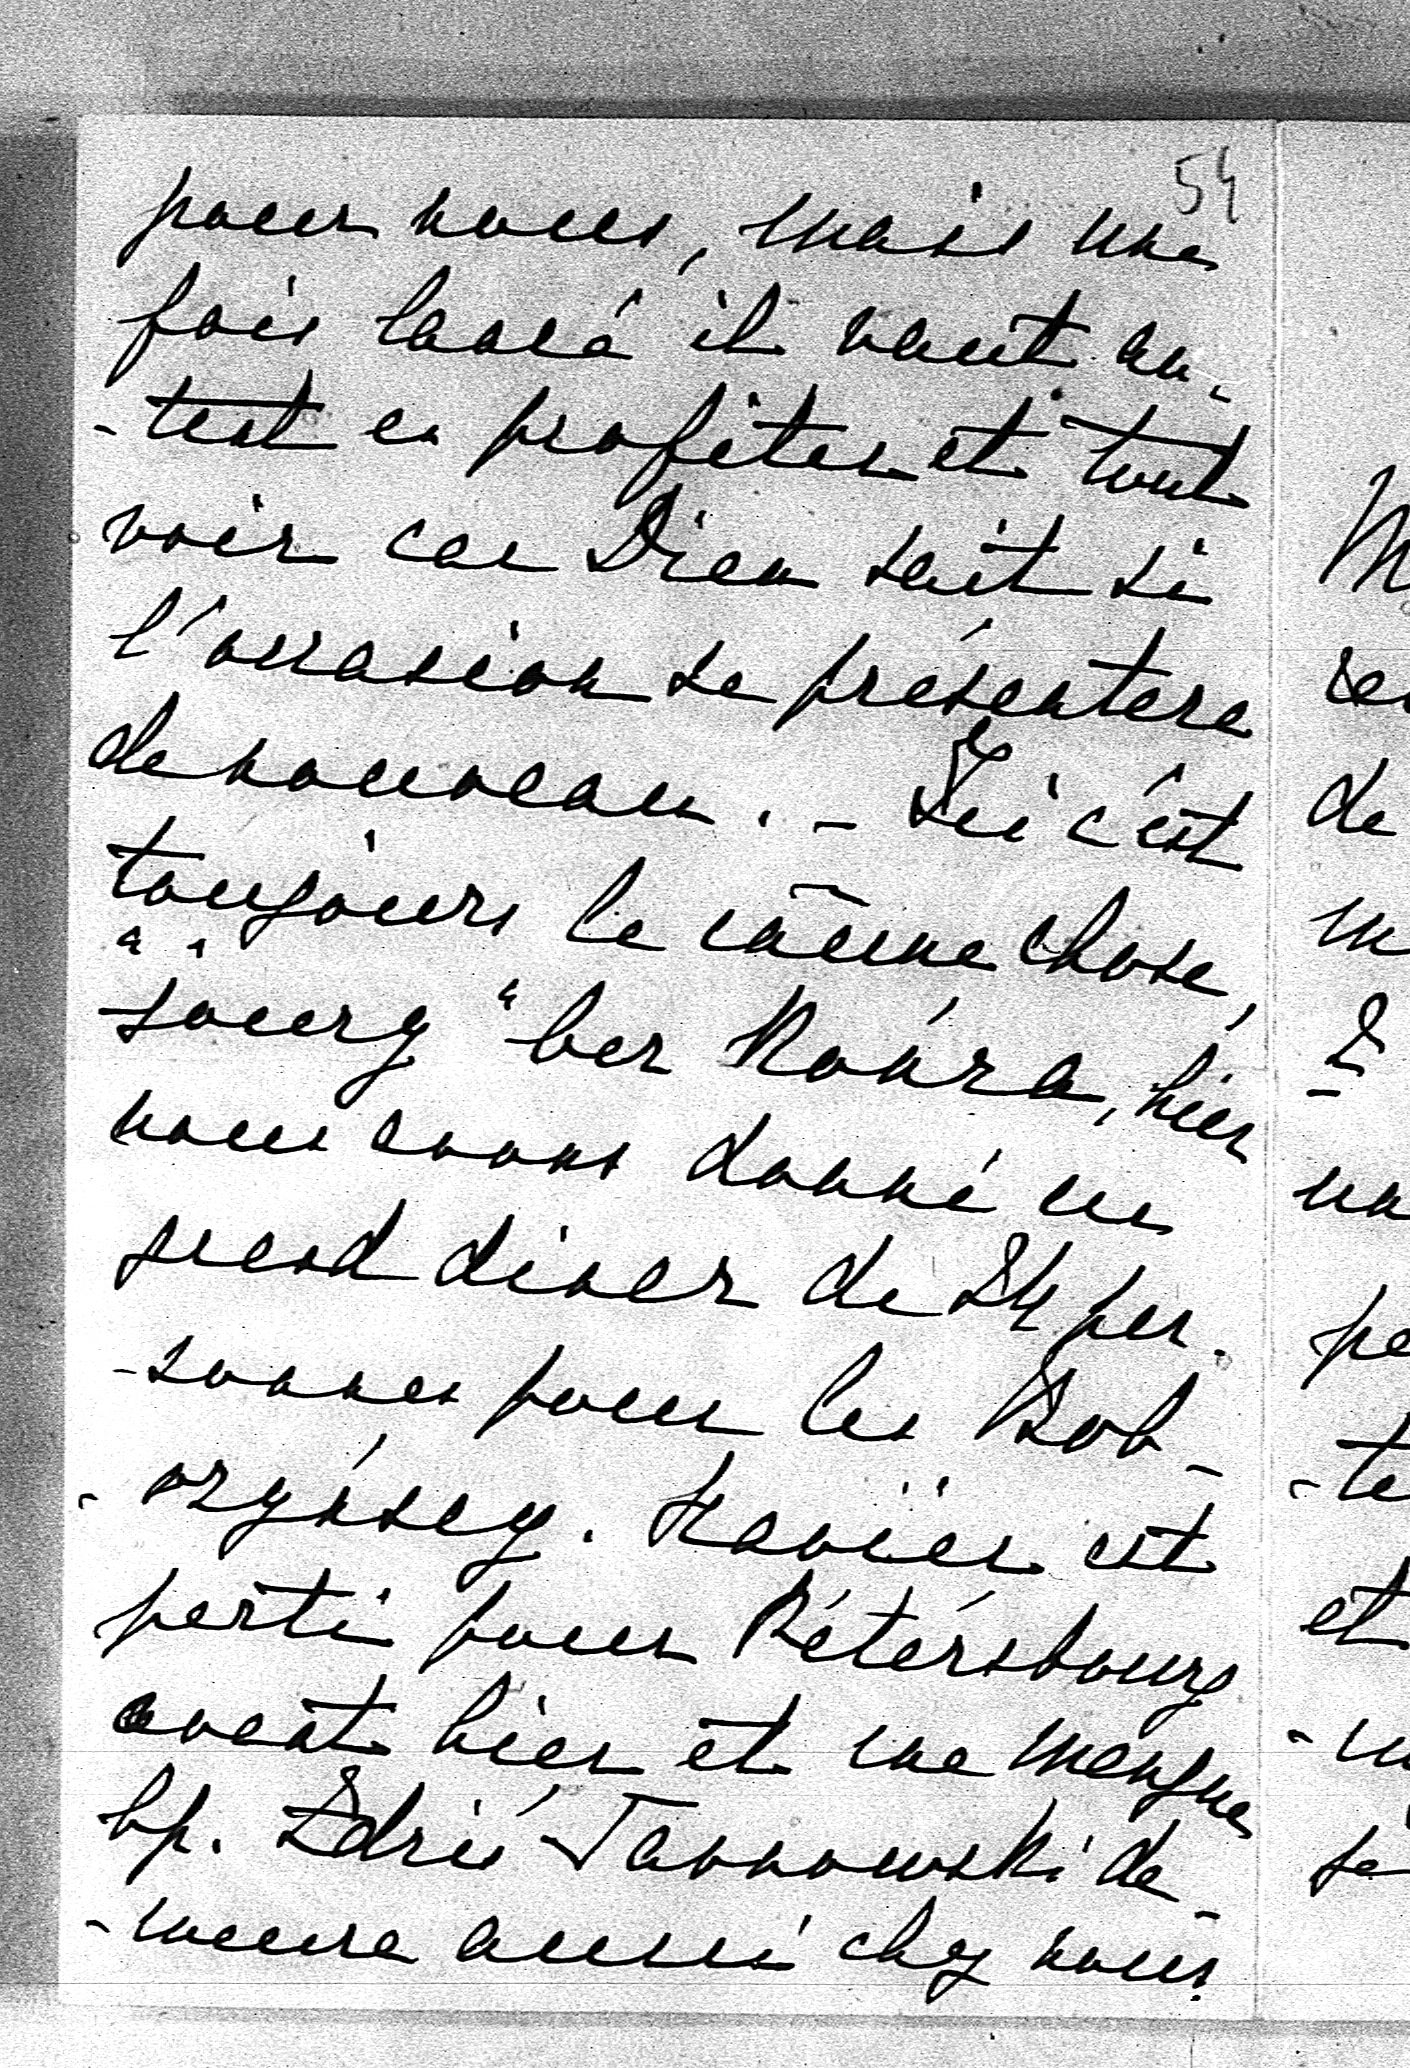 54
pour nous, mais une
fois lancé il vaut au-
-tant en profiter et tout
voir car Dieu sait si
l'occasion se présentera
de nouveau. - Ici c'est
toujours la même chose,
"bez końca, hier
nous avons donné un
grand diner de 24 per-
-sonnes pour les Bob-
-rzyńscy. Xavier est
parti pour Pétersbourg
avant hier et me manque
bp. Zdziś Tarnowski de-
-meure aussi chez nous.
M
de
m
un
pe
-te
et
se